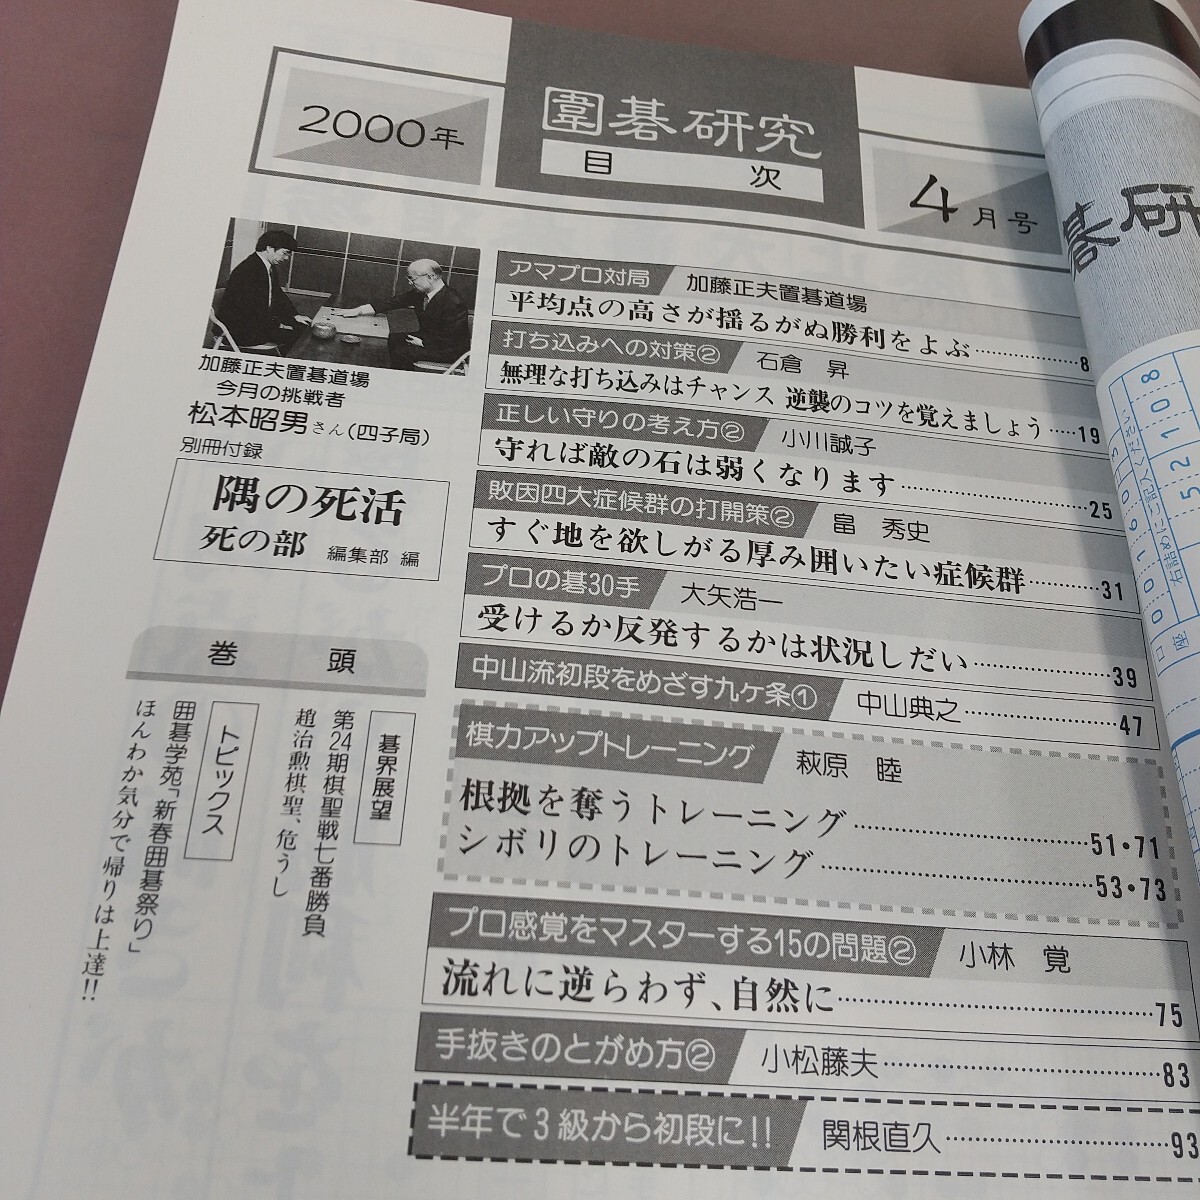 2000年
囲碁研究
目次
4月号
加藤正夫置碁道場
今月の挑戦者
松本昭男さん(四子局)
別冊付録
隅の死活
死の部 編集部 編
巻頭
碁界展望
第24期棋聖戦七番勝負
趙治勲棋聖、危うし
トピックス
囲碁学苑「新春囲碁祭り」
ほんわか気分で帰りは上達!!
アマプロ対局 加藤正夫置碁道場
平均点の高さが揺るがぬ勝利をよぶ……………8
打ち込みへの対策② 石倉 昇
無理な打ち込みはチャンス 逆襲のコツを覚えましょう……19
正しい守りの考え方② 小川誠子
守れば敵の石は弱くなります……………25
敗因四大症候群の打開策② 畠 秀史
すぐ地を欲しがる厚み囲いたい症候群………31
プロの碁30手 大矢浩一
受けるか反発するかは状況しだい……………39
中山流初段をめざす九ヶ条① 中山典之……………47
棋力アップトレーニング 萩原 睦
根拠を奪うトレーニング……………51・71
シボリのトレーニング……………53・73
プロ感覚をマスターする15の問題② 小林 覚
流れに逆らわず、自然に……………75
手抜きのとがめ方② 小松藤夫……………83
半年で3級から初段に!! 関根直久……………93
碁研
口座
右詰めにご記入ください
001605
52108